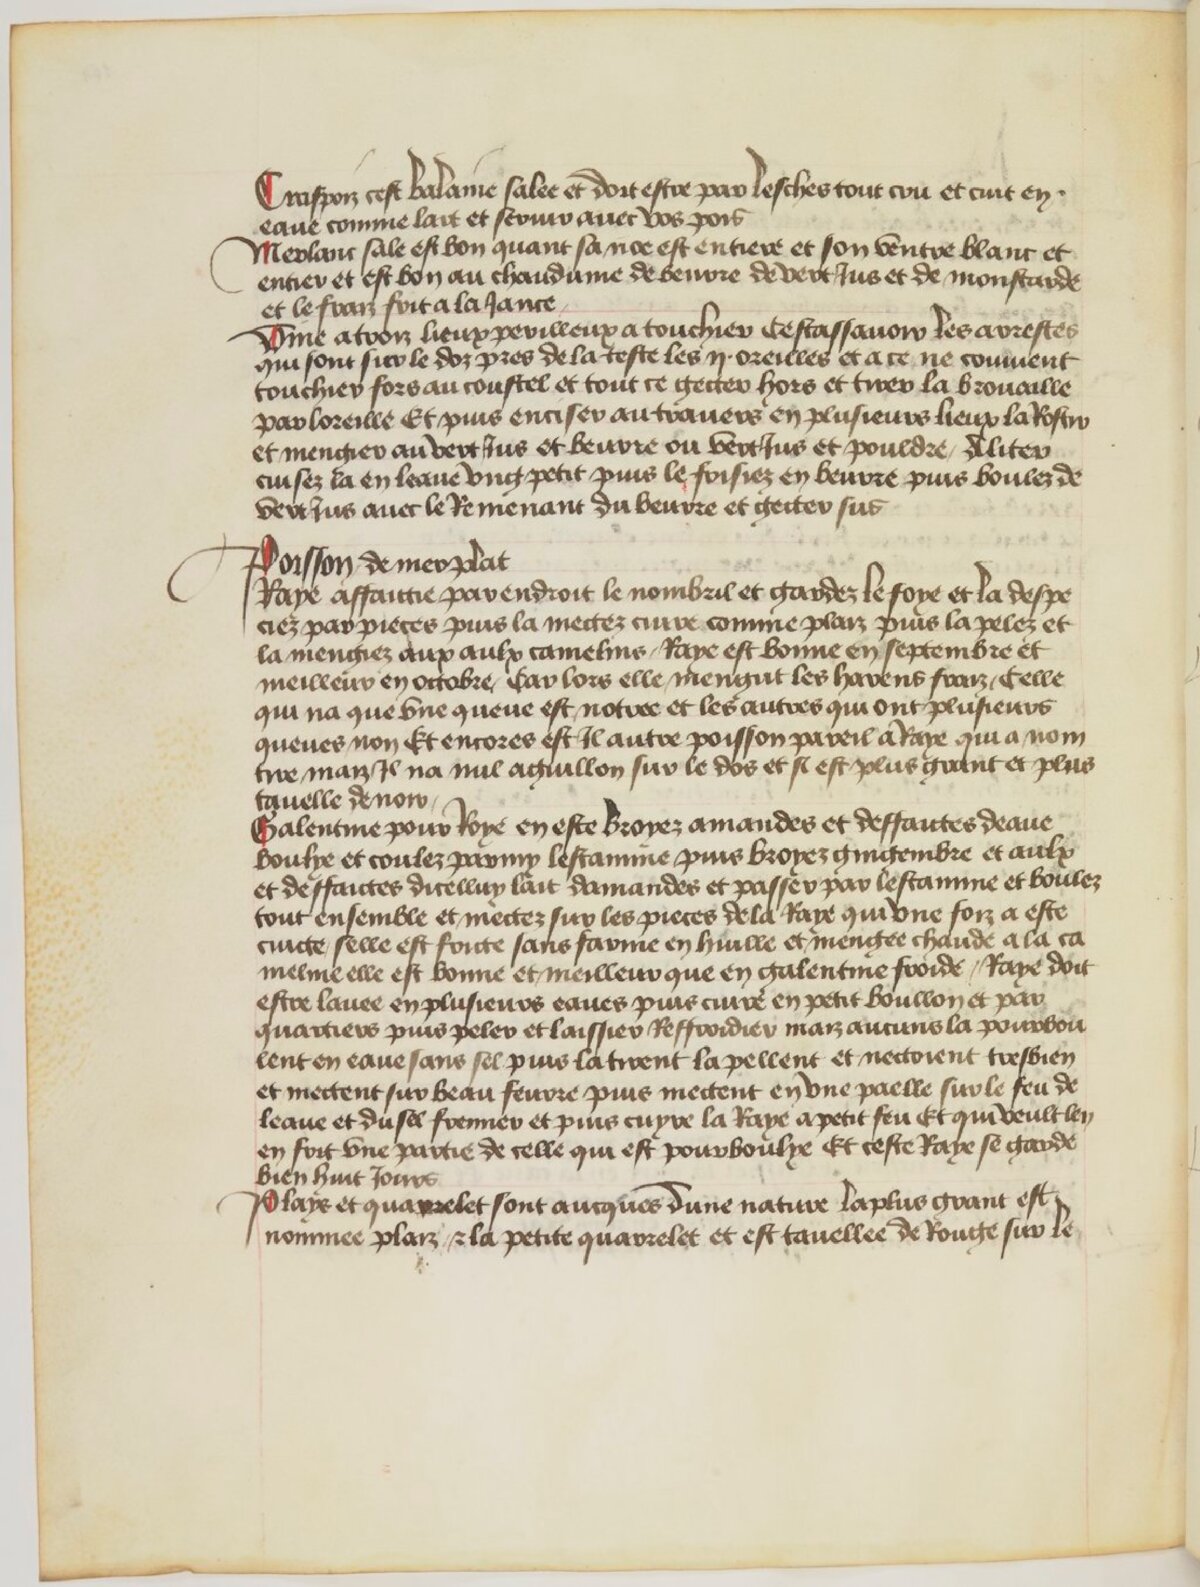 Craspoiz cest balaine salee et doit estre par lesches tout cru et cuit en
eaue comme lart et servir avec vos pois
Merlanc sale est bon quant sa noe est entiere et son ventre blanc et
entier et est bon au chaudume de beurre de vert Jus et de moustarde
et le fraiz frit a la Jance
Vive a troiz lieux perilleux a touchier Cestassavoir les arrestes
qui sont sur le doz pres de la teste les ij oreilles et a ce ne convient
touchier fors au coustel et tout ce getter hors et tirer la brouaille
par loreille Et puis enciser au travers en plusieurs lieux la Rostir
et mengier au vert Jus et beurre ou vert Jus et pouldre / Aliter
cuisez la en leaue ung petit puis le frisiez en beurre puis boulez de
vert Jus avec le Remenant du beurre et getter sus
Poisson de mer plat
Raye affaittie par endroit le nombril et gardez le foye et la despe
ciez par pieces puis la mettez cuire comme plaiz puis la pelez et
la mengiez aux aulx camelins / Raye est bonne en septembre et
meilleur en octobre / Car lors elle mengut les harens fraiz / Celle
qui na que une queue est notree et les autres qui ont plusieurs
queues non Et encores est Il autre poisson pareil a Raye qui a nom
tire maiz Il na nul aguillon sur le dos et si est plus grant et plus
tavelle de noir /
Galentine pour Roye en este broyez amandes et deffaites deaue
boulye et coulez parmy lestamine puis broyez gingembre et aulx
et deffaictes dicelluy lait damandes et passer par lestamine et boulez
tout ensemble et mettez sur les pieces de la Raye qui une foiz a este
cuicte / selle est fricte sans farine en huille et mengee chaude a la ca
meline elle est bonne et meilleur que en galentine froide / Raye doit
estre lavee en plusieurs eaues puis cuire en petit boullon et par
quartiers puis peler et laissier Reffroidier maiz aucuns la pourbou
lent en eaue sans sel puis la tirent la pellent et nectoient tresbien
et mettent sur beau feurre puis mettent en une paelle sur le feu de
leaue et du sel fremier et puis cuyre la Raye a petit feu Et qui veult len
en frit une partie de celle qui est pourboulye Et ceste Raye se garde
bien huit Jours
Plays et quarrelet sont aucques dune nature la plus grant est
nommee plaiz / & la petite quarrelet et est tavellee de Rouge sur le